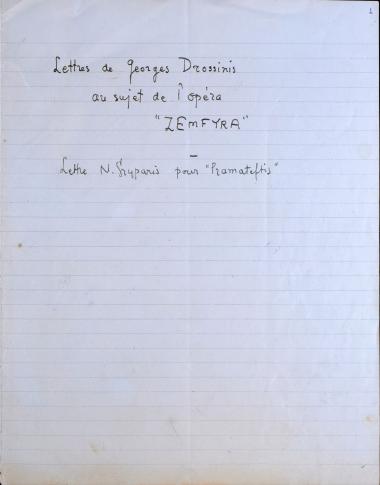 1
Lettres de Georges Drossinis
au sujet de l'opéra
"ZEMFYRA"
—
Lettre N. Gryparis pour "Pramateftis"